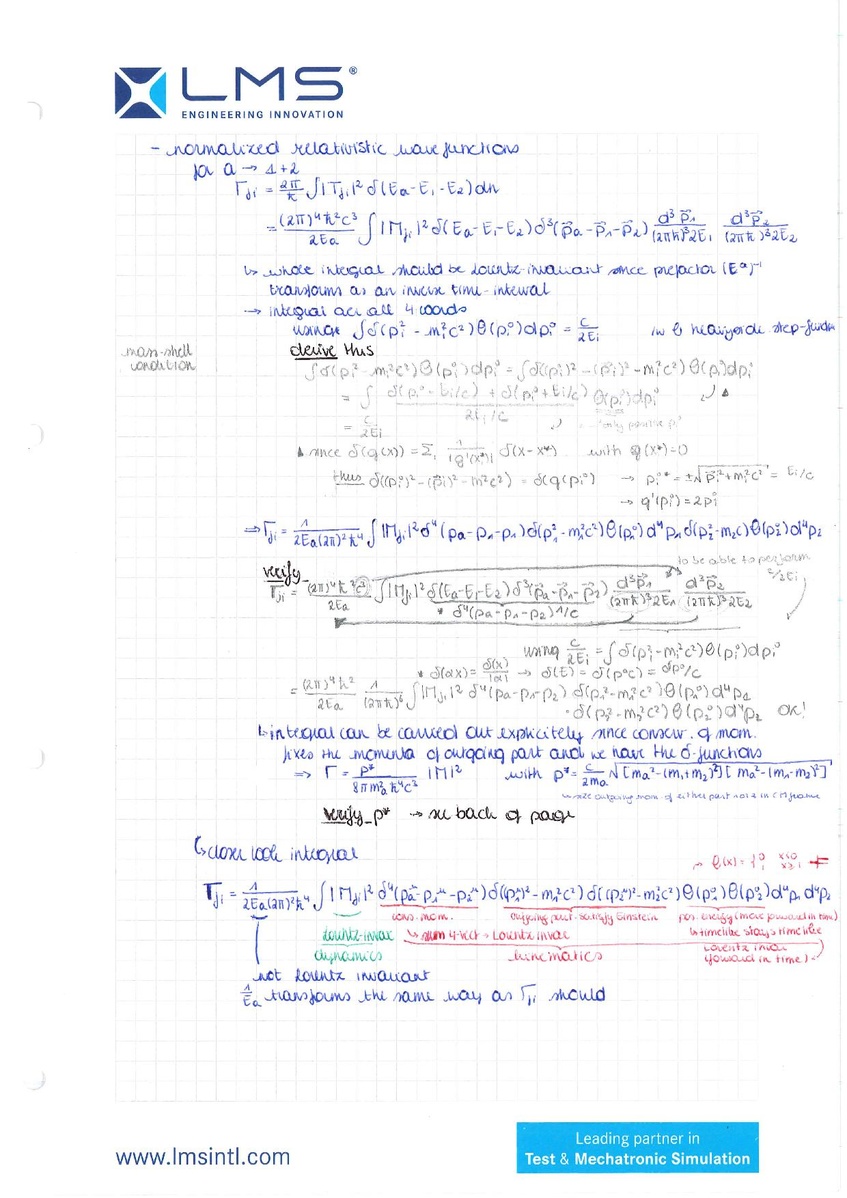 LMS®
ENGINEERING INNOVATION
- normalized relativistic wavefunctions
for a → 1+2
Γ_fi = 2π/ħ ∫|T_fi|² δ(Ea-E1-E2)dn
= (2π)⁴ħ²c³/2Ea ∫|M_fi|² δ(Ea-E1-E2)δ³(p⃗a-p⃗1-p⃗2) d³p⃗1/(2πħ)³2E1 d³p⃗2/(2πħ)³2E2
↳ whole integral should be Lorentz-invariant since prefactor (Ea)⁻¹
transforms as an inverse time-interval
→ integral over all 4 coords
using ∫δ(pi² - mi²c²)Θ(pi⁰)dpi⁰ = c/2Ei
step-function
mass-shell
condition
derive this
∫δ(pi² - mi²c²)Θ(pi⁰)dpi⁰ = ∫δ((pi⁰)² - (p⃗i)² - mi²c²)Θ(pi⁰)dpi⁰
= ∫ δ(pi⁰ - Ei/c) + δ(pi⁰ + Ei/c) / 2Ei/c Θ(pi⁰)dpi⁰ ▲
= c/2Ei only positive pi⁰
▲ since δ(g(x)) = Σi 1/|g'(x*)| δ(x-x*) with g(x*)=0
thus δ((pi⁰)² - (p⃗i)² - mi²c²) = δ(g(pi⁰)) → pi⁰* = ±√p⃗i²+mi²c² = Ei/c
→ g'(pi⁰) = 2pi⁰
⇒ Γ_fi = 1/2Ea(2π)²ħ⁴ ∫|M_fi|² δ⁴(pa-p1-p1)δ(p1²-m1²c²)Θ(p1⁰)d⁴p1 δ(p2²-m2c)Θ(p2⁰)d⁴p2
to be able to perform
c/2Ei
verify
Γ_fi = (2π)⁴ħ²c³/2Ea ∫|M_fi|² δ(Ea-E1-E2)δ³(p⃗a-p⃗1-p⃗2) d³p⃗1/(2πħ)³2E1 d³p⃗2/(2πħ)³2E2
* δ⁴(pa-p1-p2)1/c
using c/2Ei = ∫δ(pi²-mi²c²)Θ(pi⁰)dpi⁰
* δ(αx) = δ(x)/|α| → δ(E) = δ(p⁰c) = δp⁰/c
= (2π)⁴ħ²/2Ea 1/(2πħ)⁶ ∫|M_fi|² δ⁴(pa-p1-p2) δ(p1²-m1²c²)Θ(p1⁰)d⁴p1
· δ(p2²-m2²c²)Θ(p2⁰)d⁴p2 OK!
↳ integral can be carried out explicitely since conserv. of mom.
fixes the momenta of outgoing part and we have the δ-functions
⇒ Γ = p*/8πma²ħ⁴c |M|² with p* = c/2ma √[ma²-(m1+m2)²][ma²-(m1-m2)²]
↳ size outgoing mom of either part 1 or 2 in CM frame
verify p* → see back of page
↳ closer look integral
Γ_fi = 1/2Ea(2π)²ħ⁴ ∫|M_fi|² δ⁴(pa^μ-p1^μ-p2^μ)δ((p1^μ)²-m1²c²)δ((p2^μ)²-m2²c²)Θ(p1⁰)Θ(p2⁰)d⁴p1 d⁴p2
cons. mom. outgoing part. satisfy Einstein pos. energy (move forward in time)
Lorentz-invar ↳ sum 4-vect → Lorentz invar ↳ timelike stays timelike
dynamics kinematics Lorentz invar
(forward in time)
not Lorentz invariant
1/Ea transforms the same way as Γ_fi should
www.lmsintl.com
Leading partner in
Test & Mechatronic Simulation